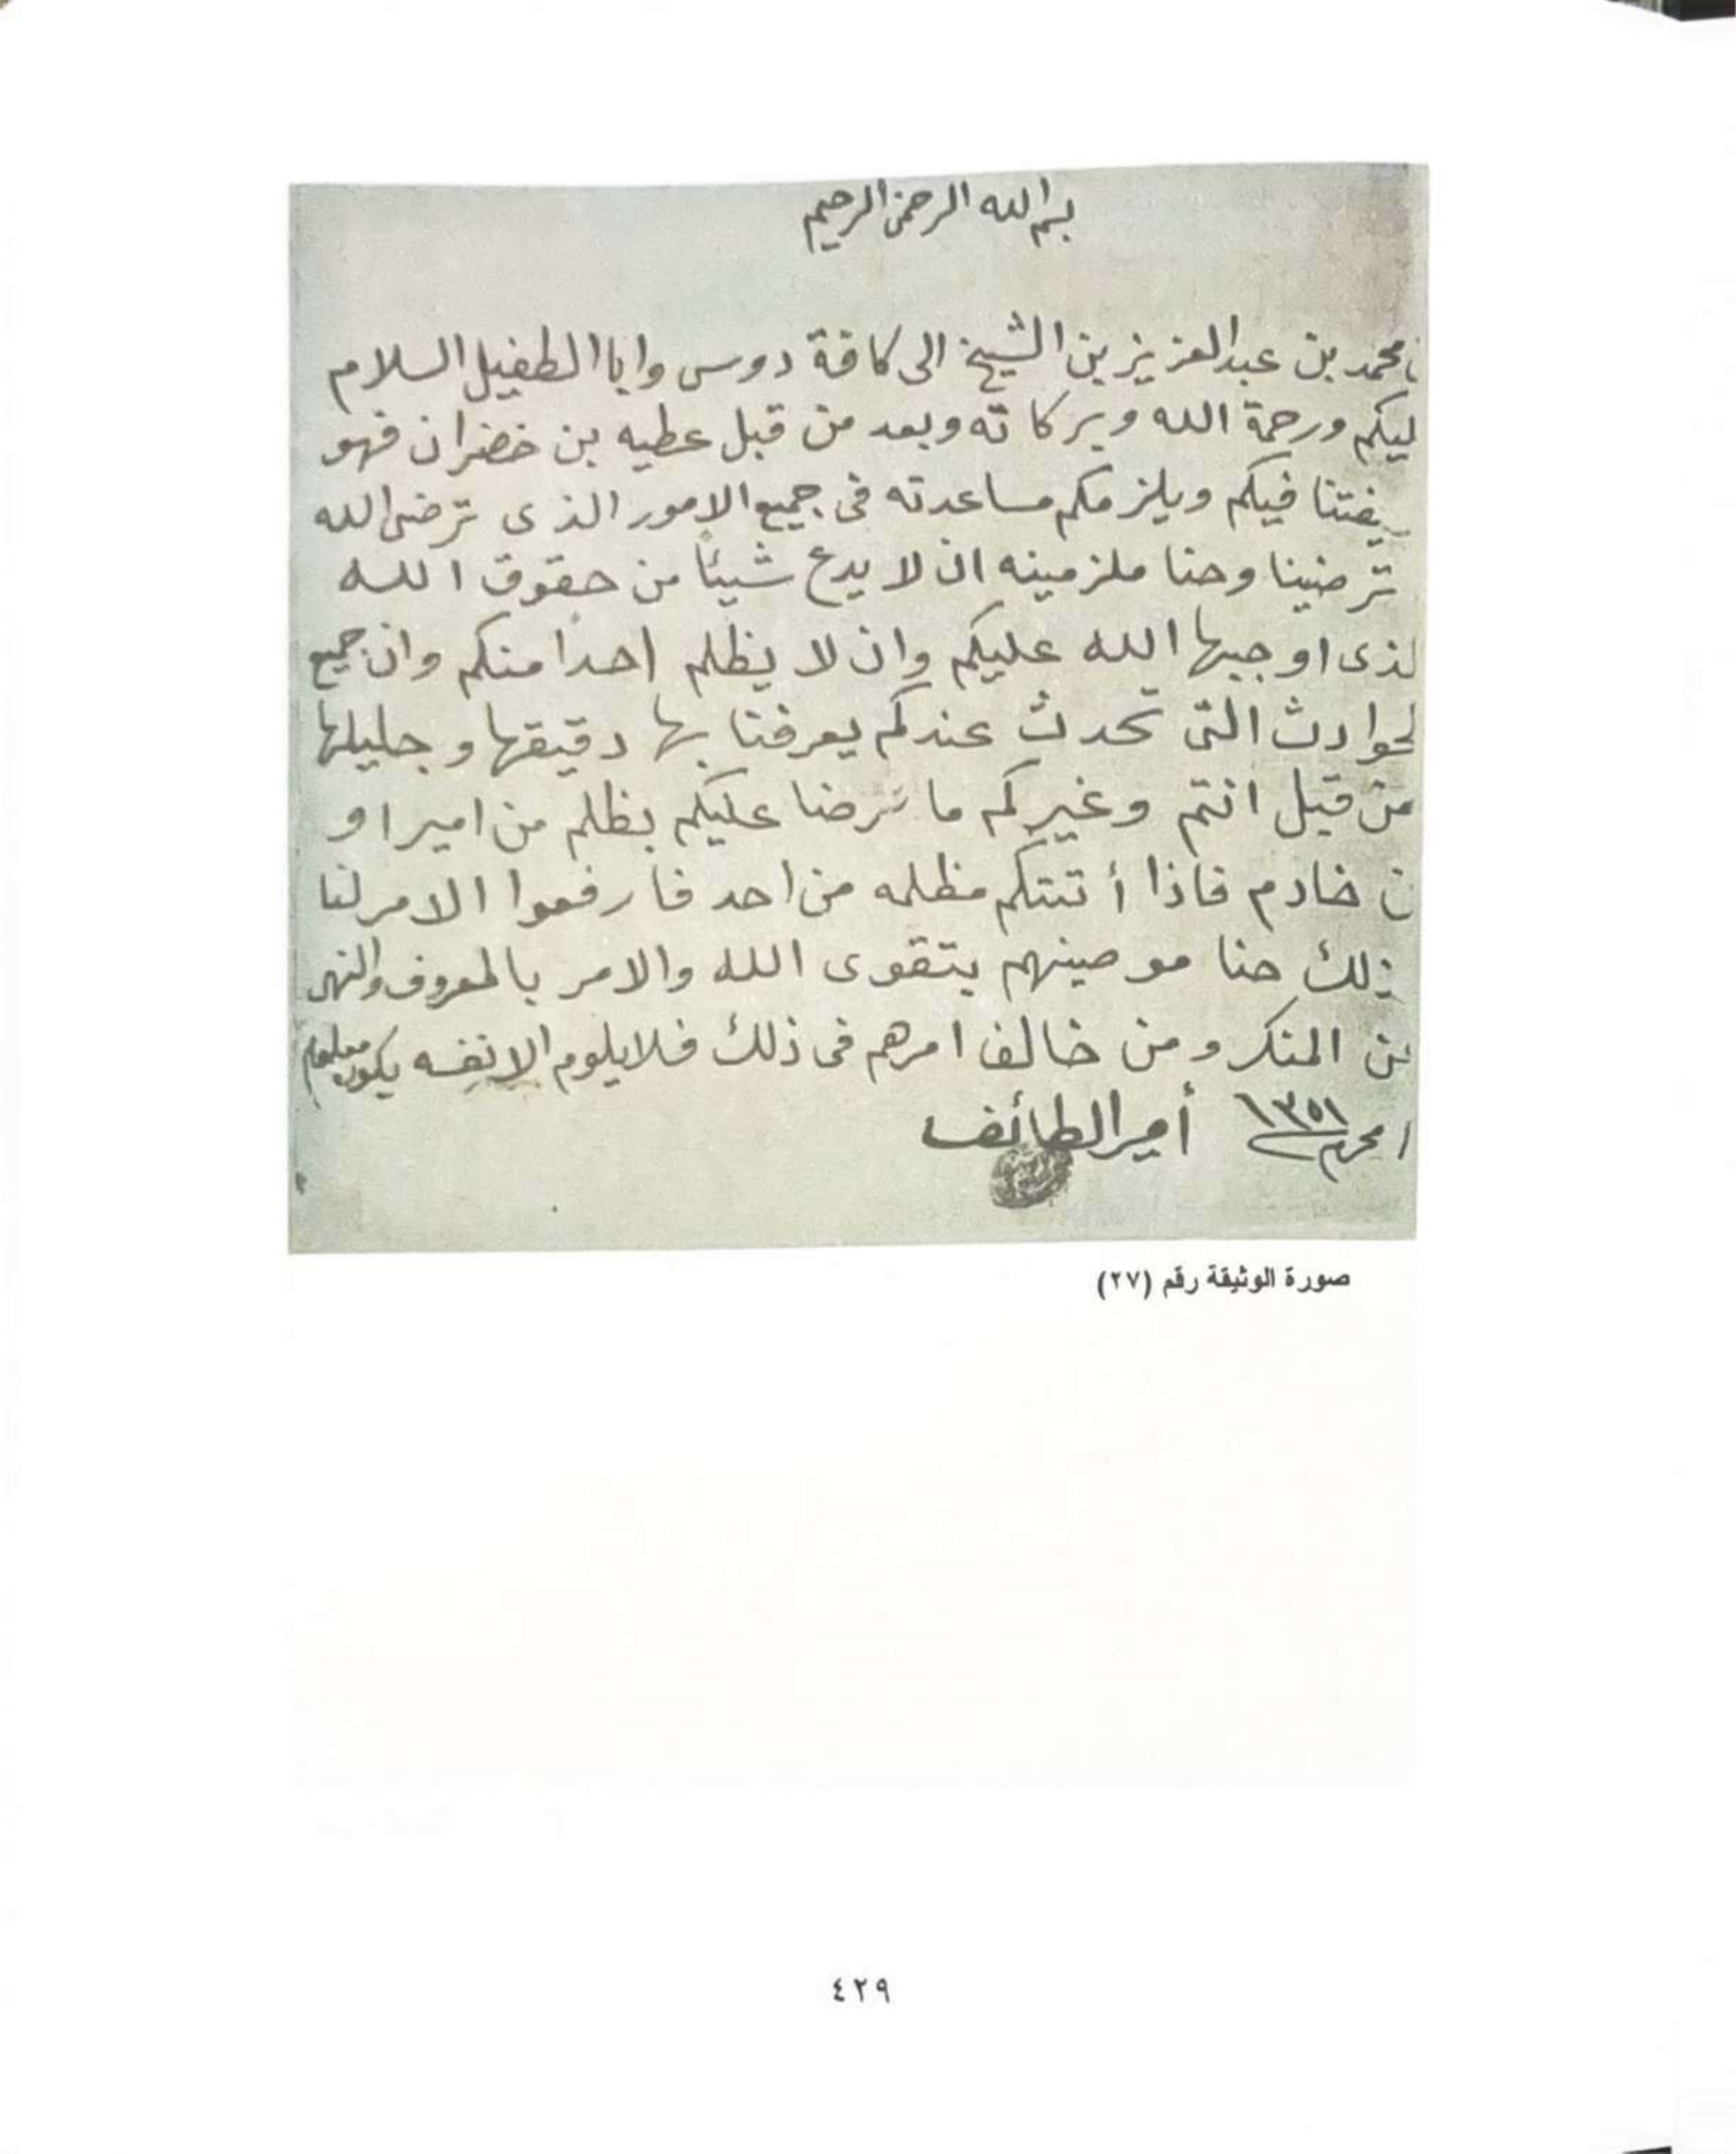 بسم الله الرحمن الرحيم
محمد بن عبدالعزيز بن الشيخ الى كافة دوس وابا الطفيل السلام
ليكم ورحمة الله وبركاته وبعد من قبل عطيه بن خضران فهو
يفتنا فيكم ويلزمكم مساعدته فى جميع الامور الذى ترضى الله
ترضينا وحنا ملزمينه ان لا يدع شيئا من حقوق الله
لذى اوجبها الله عليكم وان لا يظلم احدا منكم وان جميع
لحوادث التى تحدث عندكم يعرفنا بها دقيقها وجليلها
من قبل انتم وغيركم ما نرضا عليكم بظلم من امير او
ن خادم فاذا أتتكم مظلمه من احد فارفعوا الامر لنا
ذلك حنا موصينهم بتقوى الله والامر بالمعروف والنهى
عن المنكر ومن خالف امرهم فى ذلك فلا يلوم الا نفسه يكون معلوم
١ محرم ١٣٥١ أمير الطائف
صورة الوثيقة رقم (٢٧)
٤٢٩